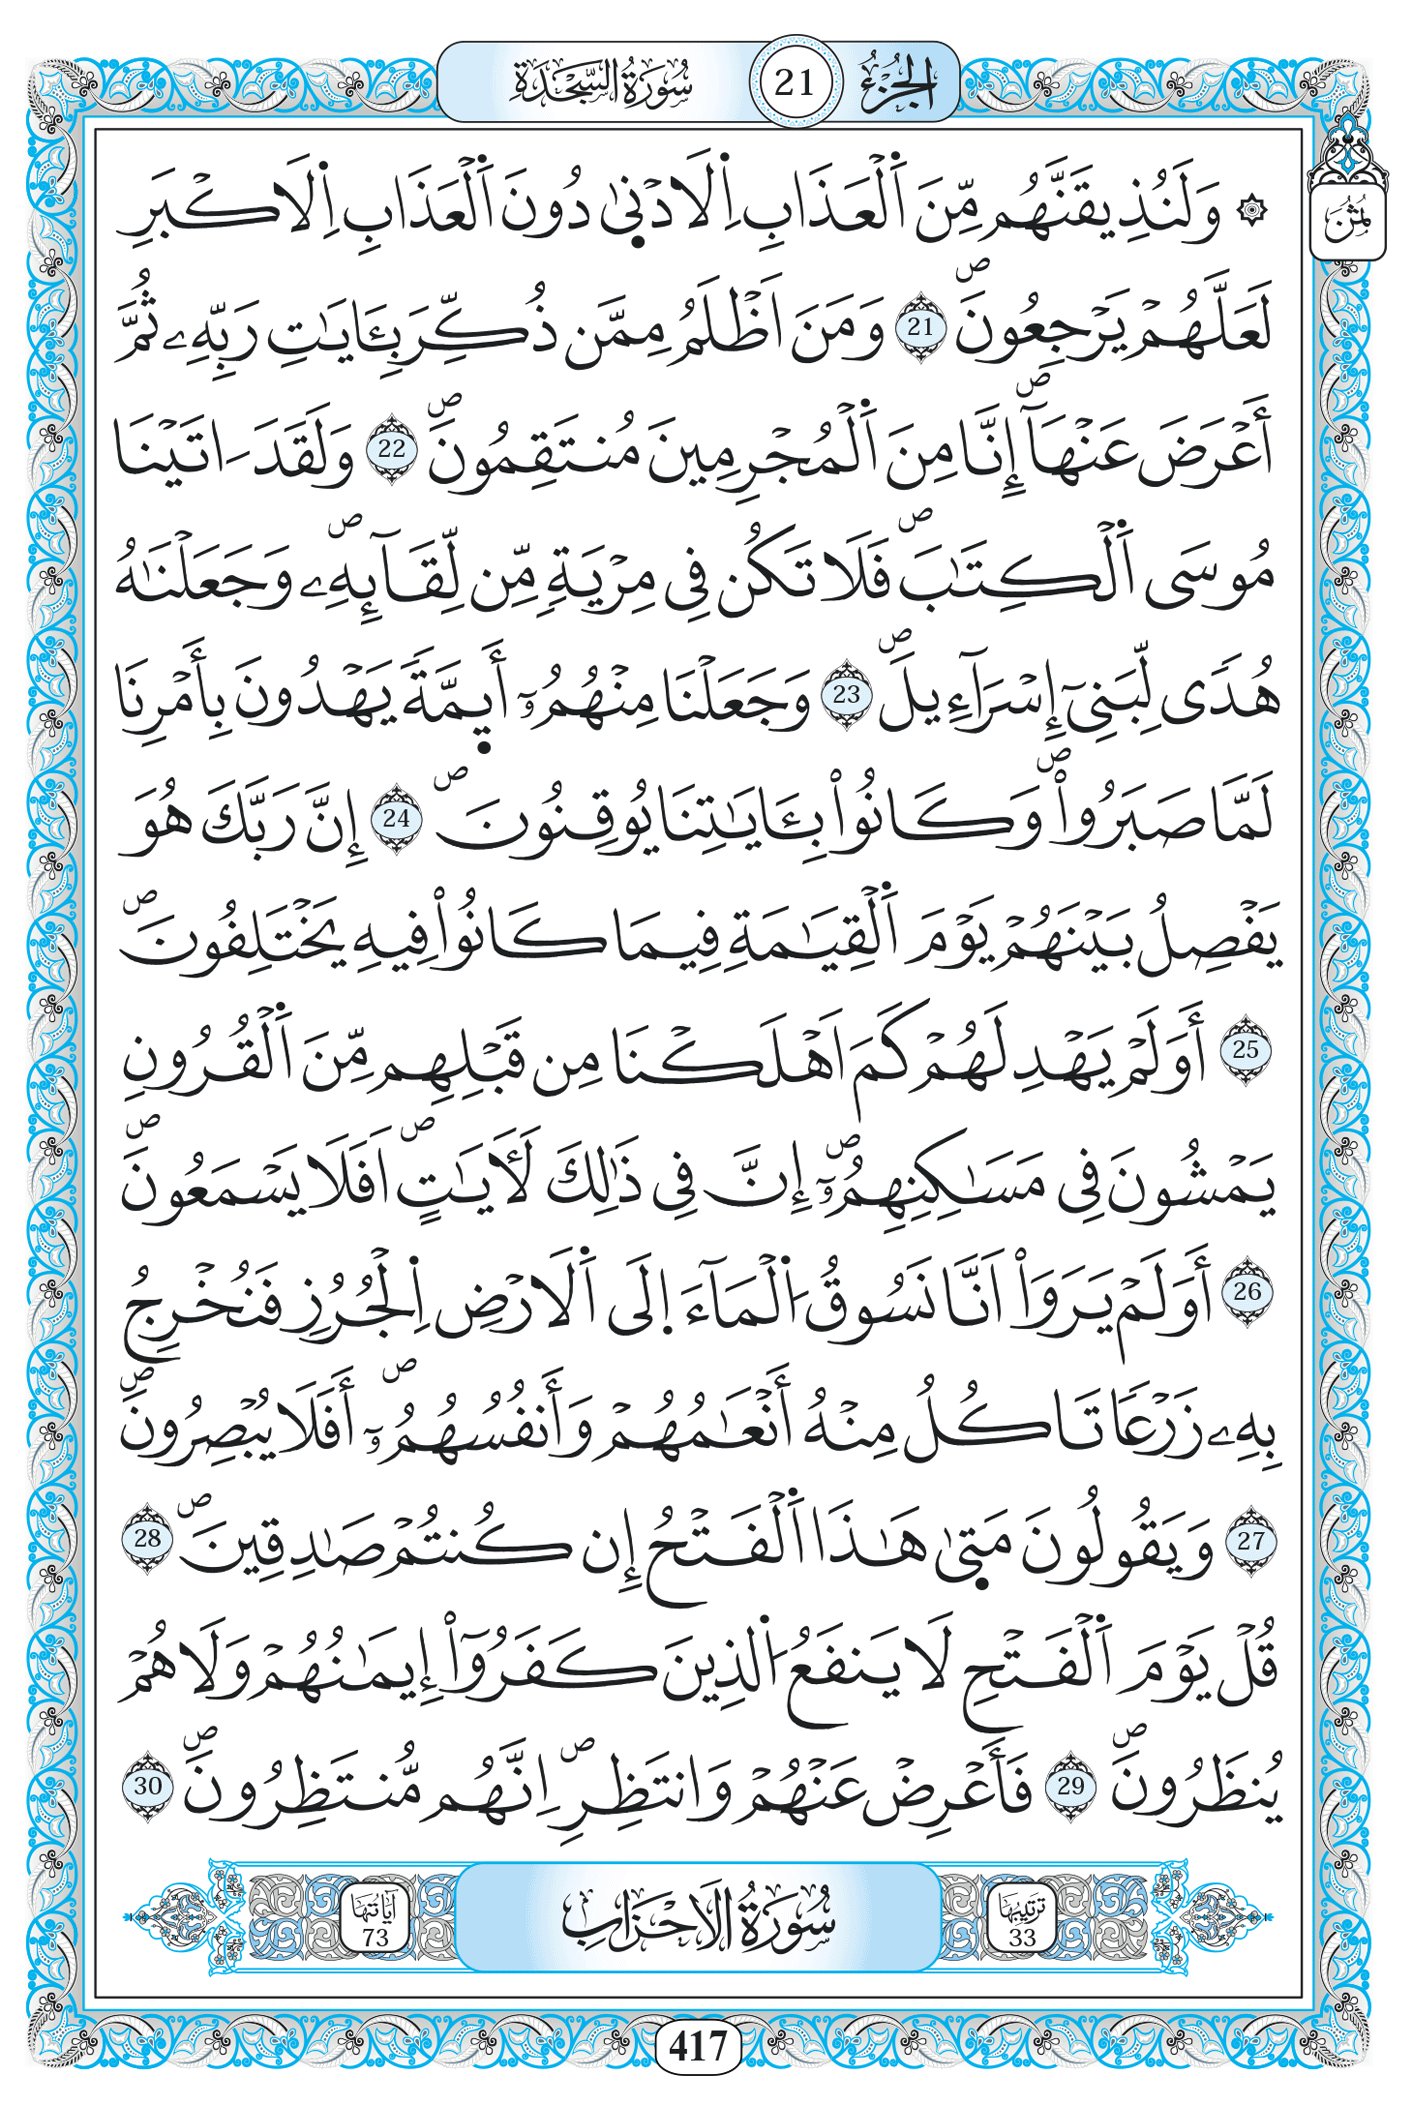 الجزء 21 سورة السجدة
ثمن
۞ وَلَنُذِيقَنَّهُم مِّنَ اَ۬لْعَذَابِ اِ۬لَادْنۭيٰ دُونَ اَ۬لْعَذَابِ اِ۬لَاكْبَرِ
لَعَلَّهُمْ يَرْجِعُونَۖ 21 وَمَنَ اَظْلَمُ مِمَّن ذُكِّرَ بِـَٔايَٰتِ رَبِّهِۦ ثُمَّ
أَعْرَضَ عَنْهَآۖ إِنَّا مِنَ اَ۬لْمُجْرِمِينَ مُنتَقِمُونَۖ 22 وَلَقَدَ اٰتَيْنَا
مُوسَى اَ۬لْكِتَٰبَۖ فَلَا تَكُن فِى مِرْيَةٍ مِّن لِّقَآئِهِۦۖ وَجَعَلْنَٰهُ
هُدًى لِّبَنِىٓ إِسْرَآءِيلَۖ 23 وَجَعَلْنَا مِنْهُمُۥٓ أَئِمَّةً يَهْدُونَ بِأَمْرِنَا
لَمَّا صَبَرُواْۖ وَكَانُواْ بِـَٔايَٰتِنَا يُوقِنُونَۖ 24 إِنَّ رَبَّكَ هُوَ
يَفْصِلُ بَيْنَهُمْ يَوْمَ اَ۬لْقِيَٰمَةِ فِيمَا كَانُواْ فِيهِ يَخْتَلِفُونَۖ
25 أَوَلَمْ يَهْدِ لَهُمْ كَمَ اَهْلَكْنَا مِن قَبْلِهِم مِّنَ اَ۬لْقُرُونِ
يَمْشُونَ فِى مَسَٰكِنِهِمُۥٓۖ إِنَّ فِى ذَٰلِكَ لَأٓيَٰتٍۖ اَفَلَا يَسْمَعُونَۖ
26 أَوَلَمْ يَرَوَاْ اَنَّا نَسُوقُ اُ۬لْمَآءَ اِ۪لَى اَ۬لَارْضِ اِ۬لْجُرُزِ فَنُخْرِجُ
بِهِۦ زَرْعًا تَاكُلُ مِنْهُ أَنْعَٰمُهُمْ وَأَنفُسُهُمُۥٓۖ أَفَلَا يُبْصِرُونَۖ
27 وَيَقُولُونَ مَتۭيٰ هَٰذَا اَ۬لْفَتْحُ إِن كُنتُمْ صَٰدِقِينَۖ 28
قُلْ يَوْمَ اَ۬لْفَتْحِ لَا يَنفَعُ اُ۬لذِينَ كَفَرُوٓاْ إِيمَٰنُهُمْ وَلَا هُمْ
يُنظَرُونَۖ 29 فَأَعْرِضْ عَنْهُمْ وَانتَظِرِۖ اِنَّهُم مُّنتَظِرُونَۖ 30
ترتيبها 33 سورة الاحزاب آياتها 73
417